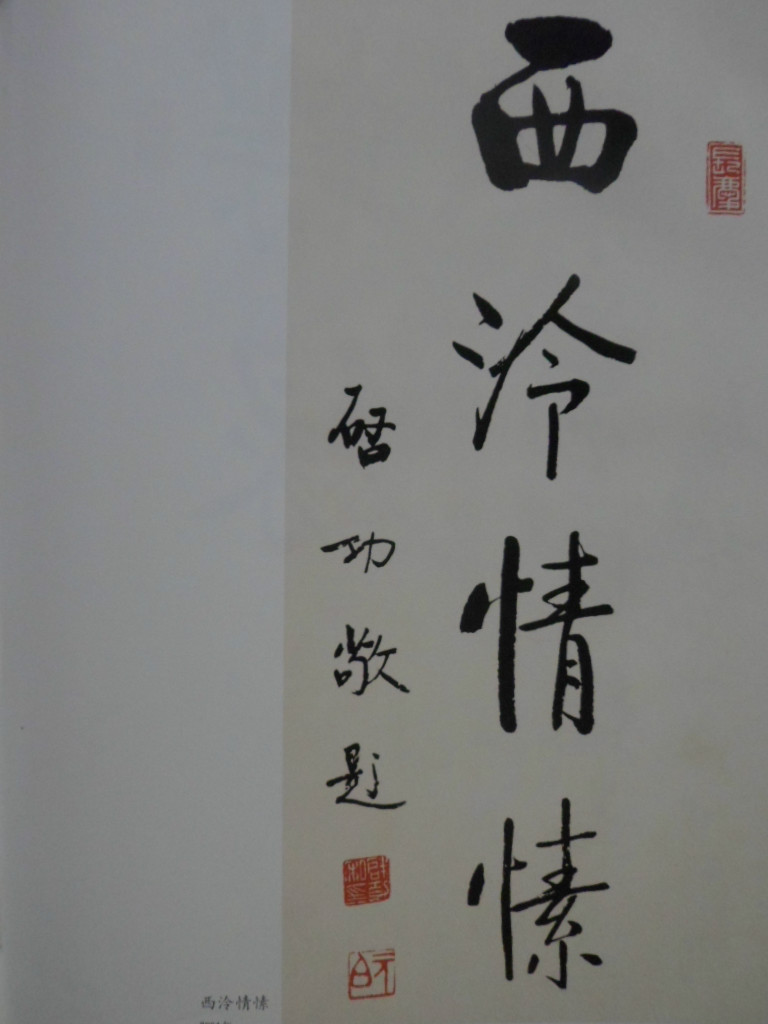 西泠情愫
启功敬题
西泠情愫